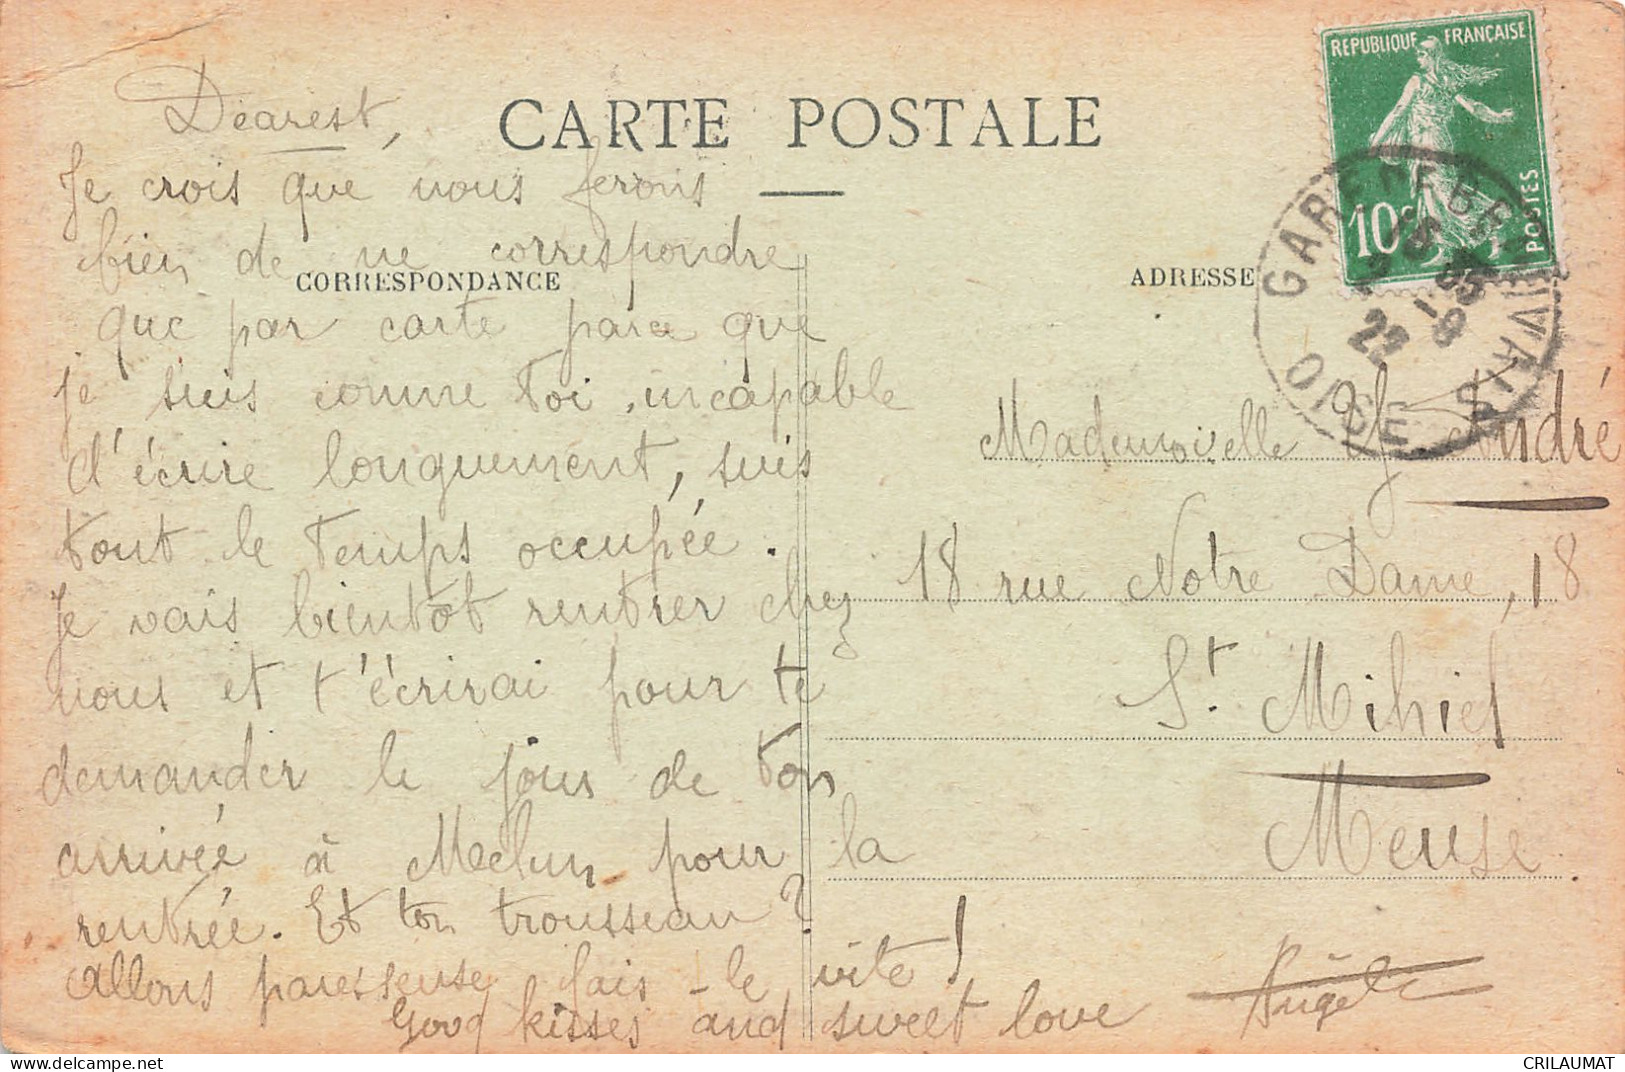 Dearest,
CARTE POSTALE
Je crois que nous ferons
bien de ne correspondre
CORRESPONDANCE
que par carte parce que
je suis comme toi, incapable
d'écrire longuement, suis
tout le temps occupée.
Je vais bientôt rentrer chez
nous et t'écrirai pour te
demander le jour de ton
arrivée à Melun pour la
rentrée. Et ton trousseau?
Allons paresseuse fais-le vite!
Good kisses and sweet love Angèle
REPUBLIQUE FRANÇAISE
10c
POSTES
GARE DE BEAUVAIS
OISE
ADRESSE
Mademoiselle Y André
18 rue Notre Dame, 18
St. Mihiel
Meuse
CRILAUMAT